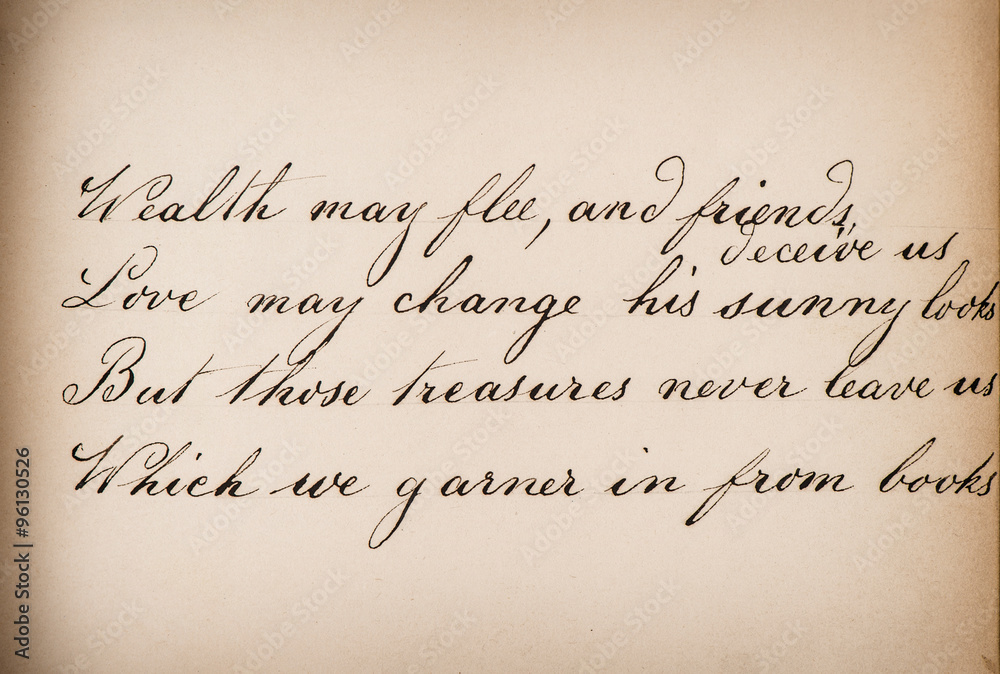 Wealth may flee, and friends
deceive us
Love may change his sunny looks
But those treasures never leave us
Which we garner in from books
Adobe Stock | #96130526